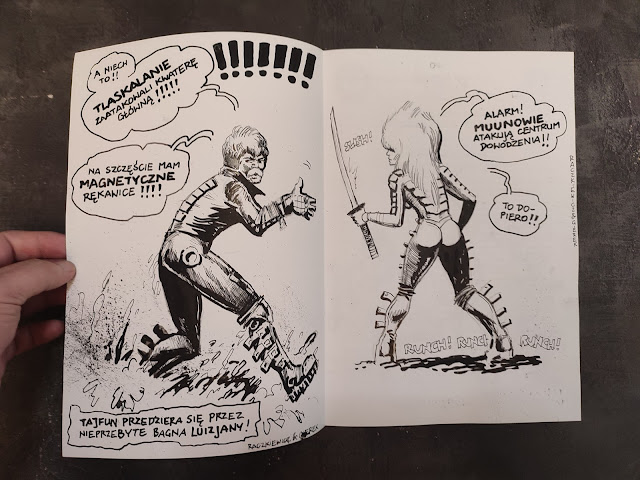 A NIECH
TO!!
TLASKALANIE
ZAATAKOWALI KWATERĘ
GŁÓWNĄ!!!!!
!!!!!!!
NA SZCZĘŚCIE MAM
MAGNETYCZNE
RĘKAWICE !!!!
TAJFUN PRZEDZIERA SIĘ PRZEZ
NIEPRZEBYTE BAGNA LUIZJANY!
RACZKIEWICZ
SLASH!
ALARM!
MUUNOWIE
ATAKUJĄ CENTRUM
DOWODZENIA!!
TO DO-
PIERO!!
RUNCH! RUNCH! RUNCH!